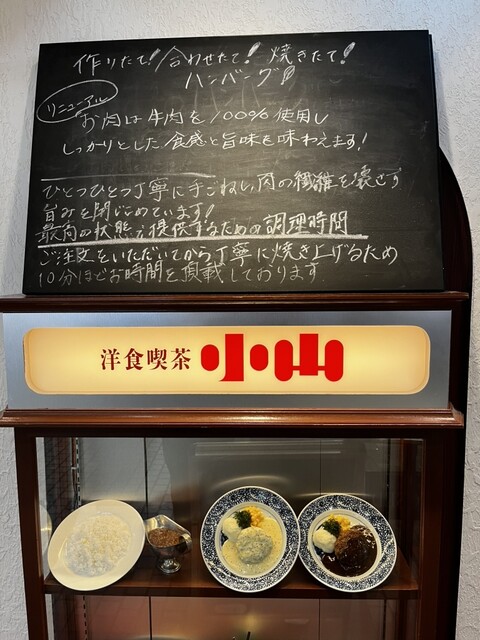 作りたて！合わせたて！焼きたて！
ハンバーグ
リニューアル
お肉は牛肉を100%使用し
しっかりとした食感と旨味を味わえます！
ひとつひとつ丁寧に手ごねし、肉の繊維を壊さず
旨みを閉じこめています！
最高の状態で提供するための調理時間
ご注文をいただいてから丁寧に焼き上げるため
10分ほどお時間を頂載しております
洋食喫茶 小山